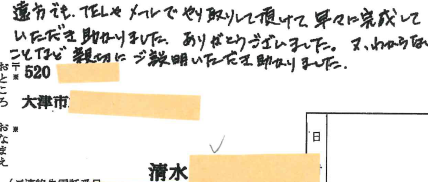 遠方でも、TELやメールでやり取りして頂けて、早々に完成して
いただき助かりました。ありがとうございました。又、わからない
ことなど親切にご説明いただき助かりました。
〒※ 520
おところ 大津市
※おなまえ 清水
日